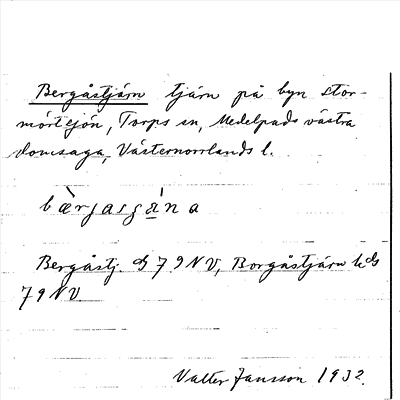 Bergåstjärn tjärn på byn Stor-
mörtsjön, Torps sn, Medelpads västra
domsaga, Västernorrlands l.
Bergåstj. 79 NV, Borgåstjärn
79 NV
Valter Jansson 1932.